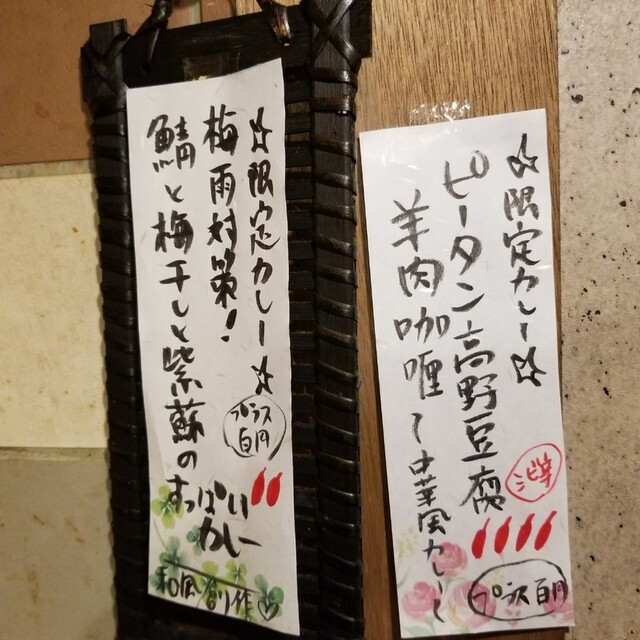 ☆限定カレー☆
梅雨対策！
鯖と梅干しと紫蘇の
すっぱい
カレー
プラス
百円
和風創作♡
☆限定カレー☆
ピータン高野豆腐
羊肉咖喱
〜中華風カレー〜
プラス百円